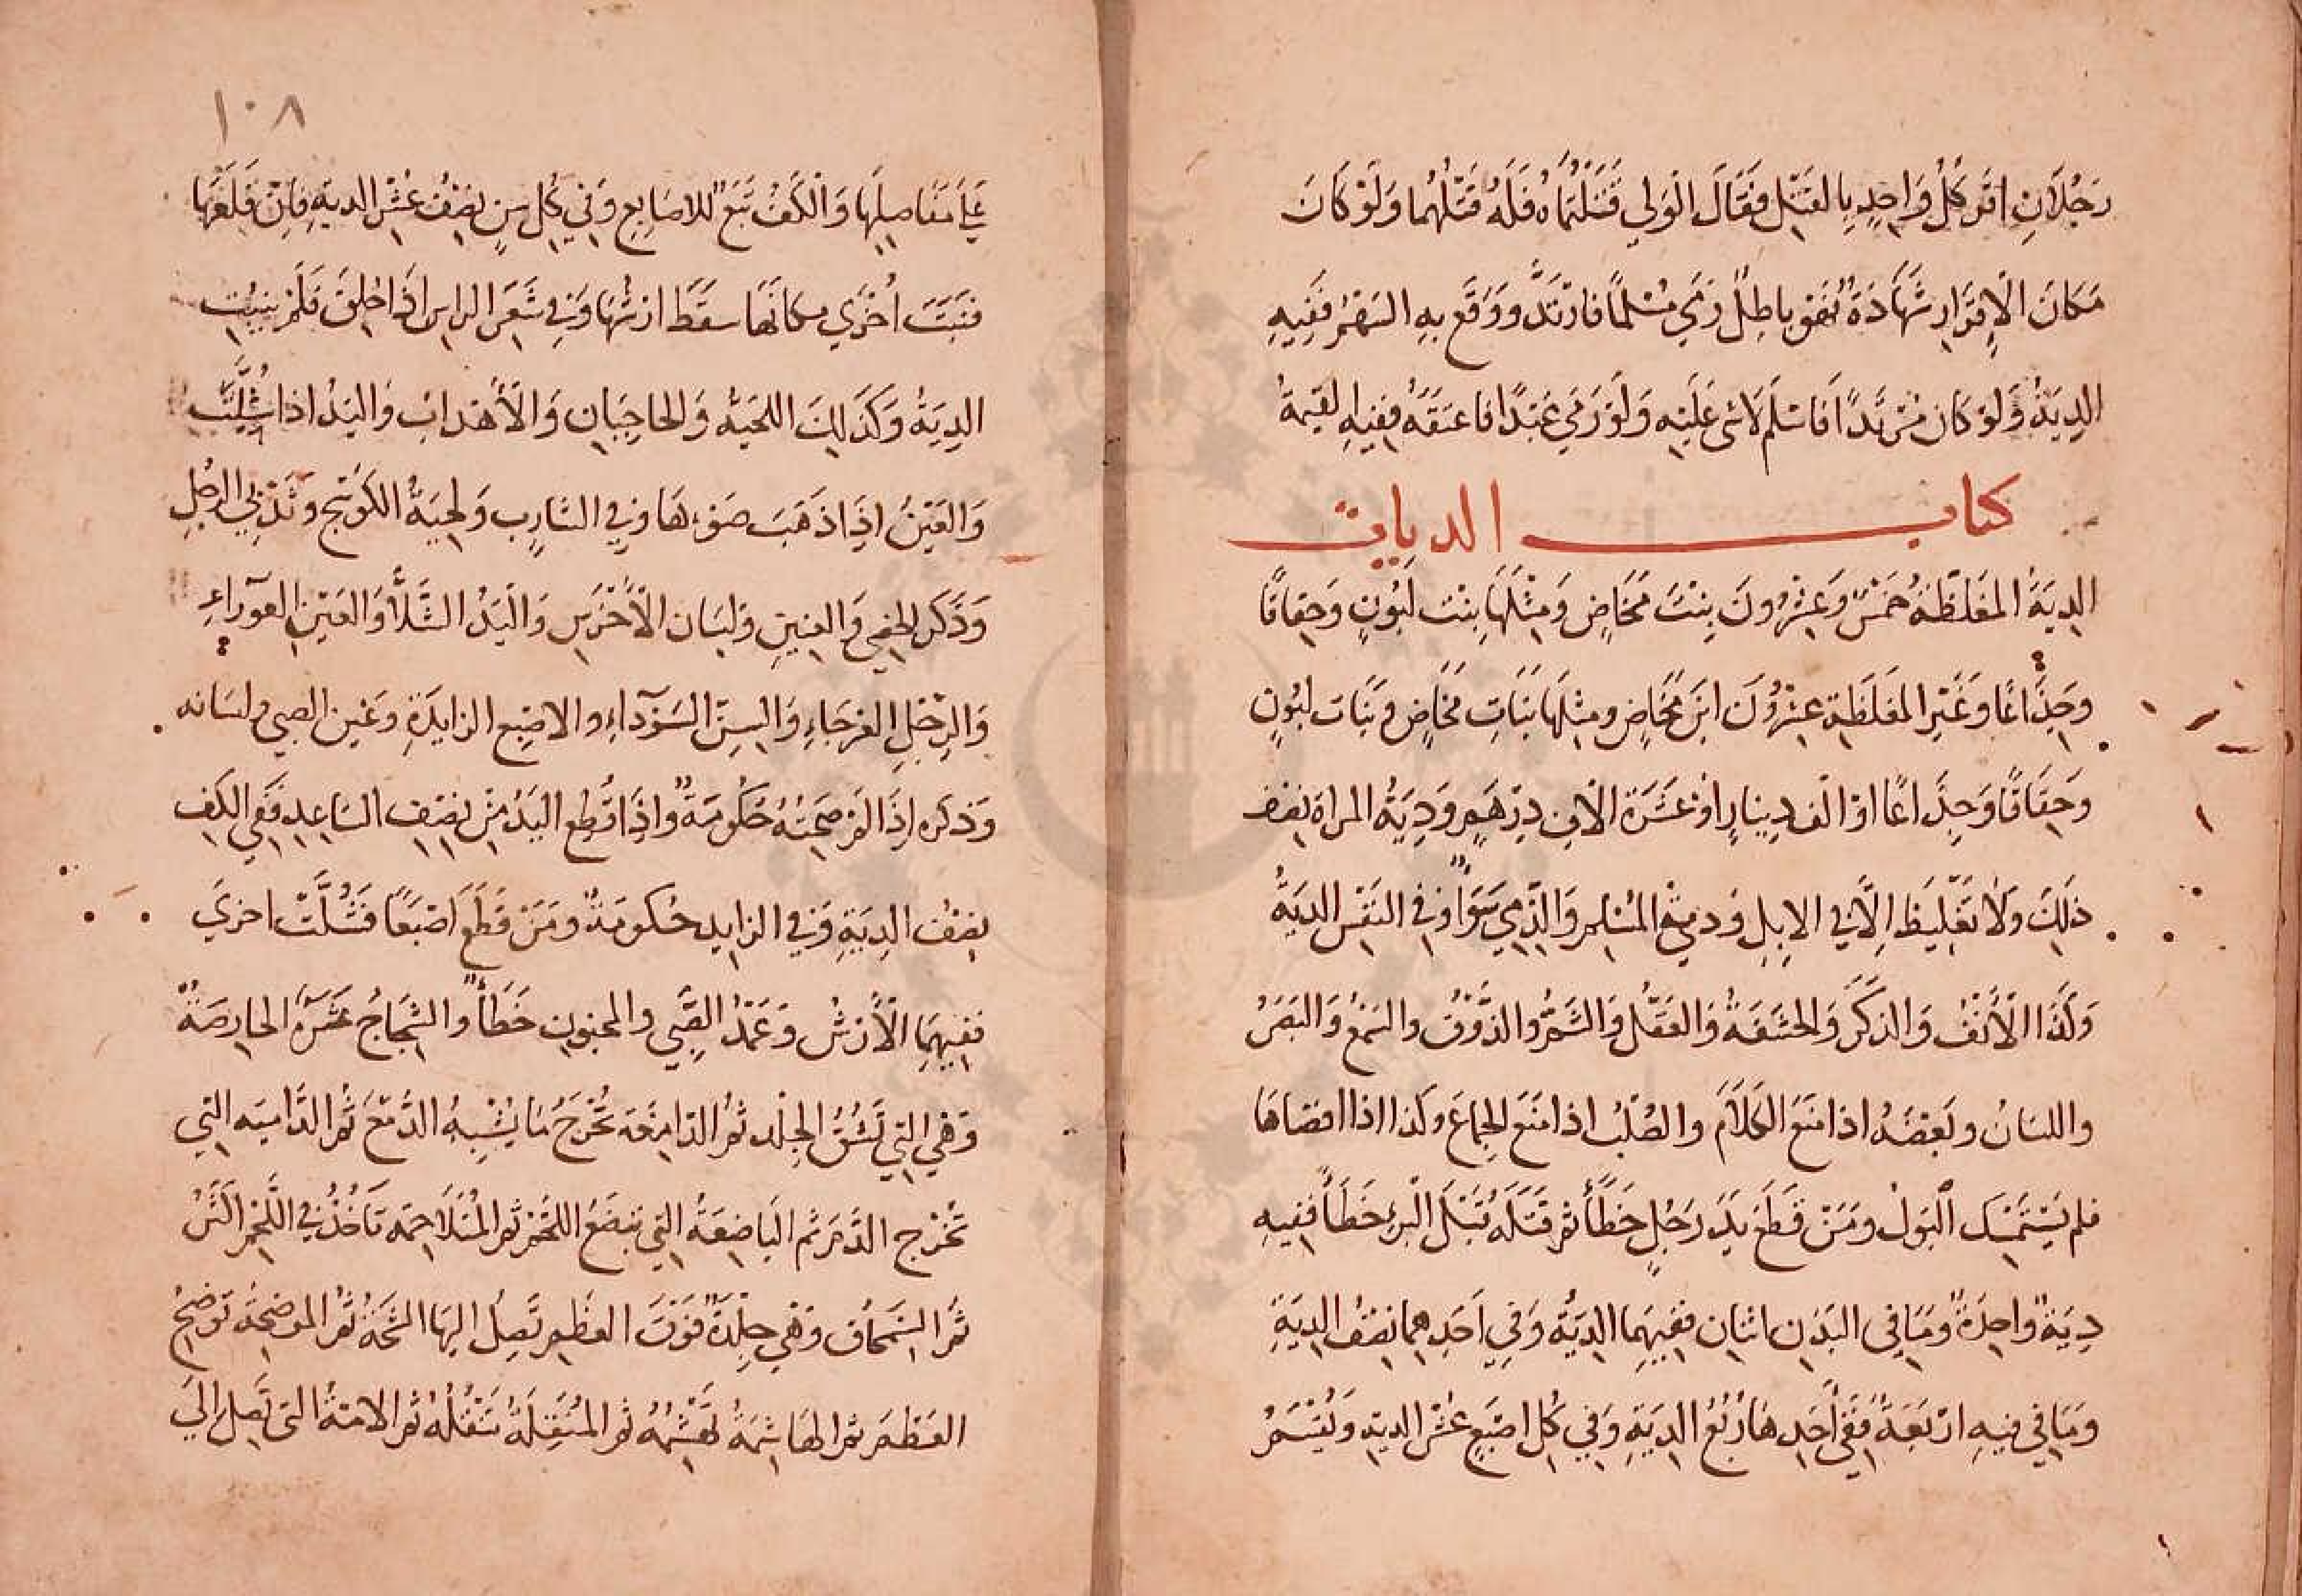 رَجُلَانِ اقَر كُلُ وَاحِدٍ بِالقَتْل فَقَالَ الْوَلي قَتَلْتُمَاهُ فَلَهُ قَتْلُهُما وَلَوْ كَانَ
مَكَانَ الْإِقرَارِ شَهَادَةٌ فَهُوَ بَاطِلٌ رَمَي مُسْلمًا فَارْتَدَّ ووَقَع بهِ السَهْمُ فَفِيهِ
الدِيَةُ وَلوْ كان مُرْتَدًا فَاسْلَم لاشى عَلَيْهِ وَلَوْ رَمَي عَبْدًا فاعتَقَهُ فِفيهِ القيمَةُ
كتاب الديات
الدِيَةُ المغَلظَةُ خمسٌ وَعِشْرُونَ بِنْتَ مَخَاضٍ وَمِثلهَا بِنْت لَبُونٍ وَحِقاقًا
وَجِذَاعًا وَغَيْرِ المغَلَظَةِ عِشرُوُنَ ابْنَ مَخَاضٍ ومثلَهَا بَنَاتِ مَخَاضٍ وَبَنَات لبُونٍ
وَحِقَاقًا وَجِذَاعًا اوْ الْف دِينَارٍ اوْ عَشَرَة الْافِ دِرْهَمٍ وَدِيَةُ المراةِ نصْف
ذلِكَ وَلَا تَغْلِيظَ اِلَّا فِي الابِلِ وَدِيَةُ المُسْلمِ وَالذِمي سَوَاءٌ وَفي النَفْس الديَةُ
وَكَذَا الْأَنْفُ وَالذكَرُ وَالحشَفَةُ وَالعَقْل وَالشَمُّ والذَوْقُ والسَمْعُ وَالبَصَرُ
واللسَانُ وَبَعْضُهُ اذا مَنَعَ الكَلَامَ والصُلْبُ اذا مَنَعَ الجِمَاعَ وكَذا اذا افضاهَا
فلم يَسْتَمْسِك البَوْلُ ومَنْ قَطَعَ يَدَ رَجُلٍ خَطَأً ثم قتَلَهُ قَبْلَ الْبُرءِ خَطَأً ففِيهِ
دِيَةٌ وَاحِدَةٌ وَمَا في البَدَنِ اثنَان ففِيهِمَا الديَةُ وَفي اَحَدِهِما نِصْفُ الدِيَةِ
وَمَا في فيهِ ارْبَعَةٌ فَفي أحَدِهَا رُبْعُ الدِيَةِ وَفي كُلِ اصْبَعٍ عُشْرُ الديَةِ وَيُقْسَمُ
١٠٨
عَلَي مفَاصلِهَا وَالْكَفُّ تَبَعٌ للاصَابِعِ وَفي كُلِ سِنٍ نِصْفُ عُشْرِ الديَةِ فَاِنْ قَلَعَهَا
فنَبَتَ أُخْرَي مكانَهَا سقَطَ ارْشُهَا وَفي شَعَرِ الراسِ اِذَا حُلِقَ فَلَمْ يَنبُت
الدِيَةُ وَكَذَلِكَ اللحْيَةُ وَالحاجِبَانِ وَالْأَهْدابُ وَاليَدُ اذا شُلِّتَ
وَالعَيْنُ اِذَا ذَهَبَ ضَوءهَا وَفي الشَارِبِ وَلحْيَةُ الكَوْسَجِ وَثَدْي الرَجُلِ
وَذَكَر الخصِي وَالعِنينِ وَلسَانِ الْأخْرَسِ وَالْيَدُ الشَّلَّاء وَالعَيْنِ العَوْرَاءِ
وَالرِجْلِ العَرْجَاءِ وَالسِنِّ السَوْدَاءِ والاصْبَعِ الزايِدَةِ وَعَيْنِ الصبي ولسَانه
وَذكره إذَا لَمْ تعْلم صِحَتُهُ حُكومَةٌ وَاذَا قُطِعَ اليَدُ مِنْ نِصْفِ السَاعِدِ فَفي الكَف
نِصْفُ الدِيَةِ وَفي الزايدِ حُكومَةٌ ومَنْ قَطَعَ اصْبَعًا فَشُلَّتْ اخرَيَ
فَفِيهِمَا الْأَرْشُ وَعَمْدُ الصَّبِي والمجنونِ خَطَأٌ وَالشِجَاجُ عَشَرَةٌ الحَارِصَةُ
وَهْي التي تَشُقُ الجِلْد ثُم الدَامِعَةِ تُخْرِجُ مَا يُشْبِهُ الدَّمْعَ ثُم الدَّاميَه التي
تُخْرِجُ الدَّمَ ثم البَاضِعَةُ التِي تَبْضَعُ اللحْمَ ثم المُتَلَاحِمَه تَأْخُذُ في اللَّحْمِ اكثَرُ
ثُمَ السِمْحَاق وَهْي جِلْدَةٌ فَوْقَ العَظْمِ تَصِلُ اليهَا الشَجَّةُ ثُم الموضِحَةُ تُوضِحُ
العَظمَ ثم الهَاشِمَةُ تَهْشِمُهُ ثم المُنَقِلَةُ تَنْقُلُهُ ثم الامَةُ التي تَصِل اليَ